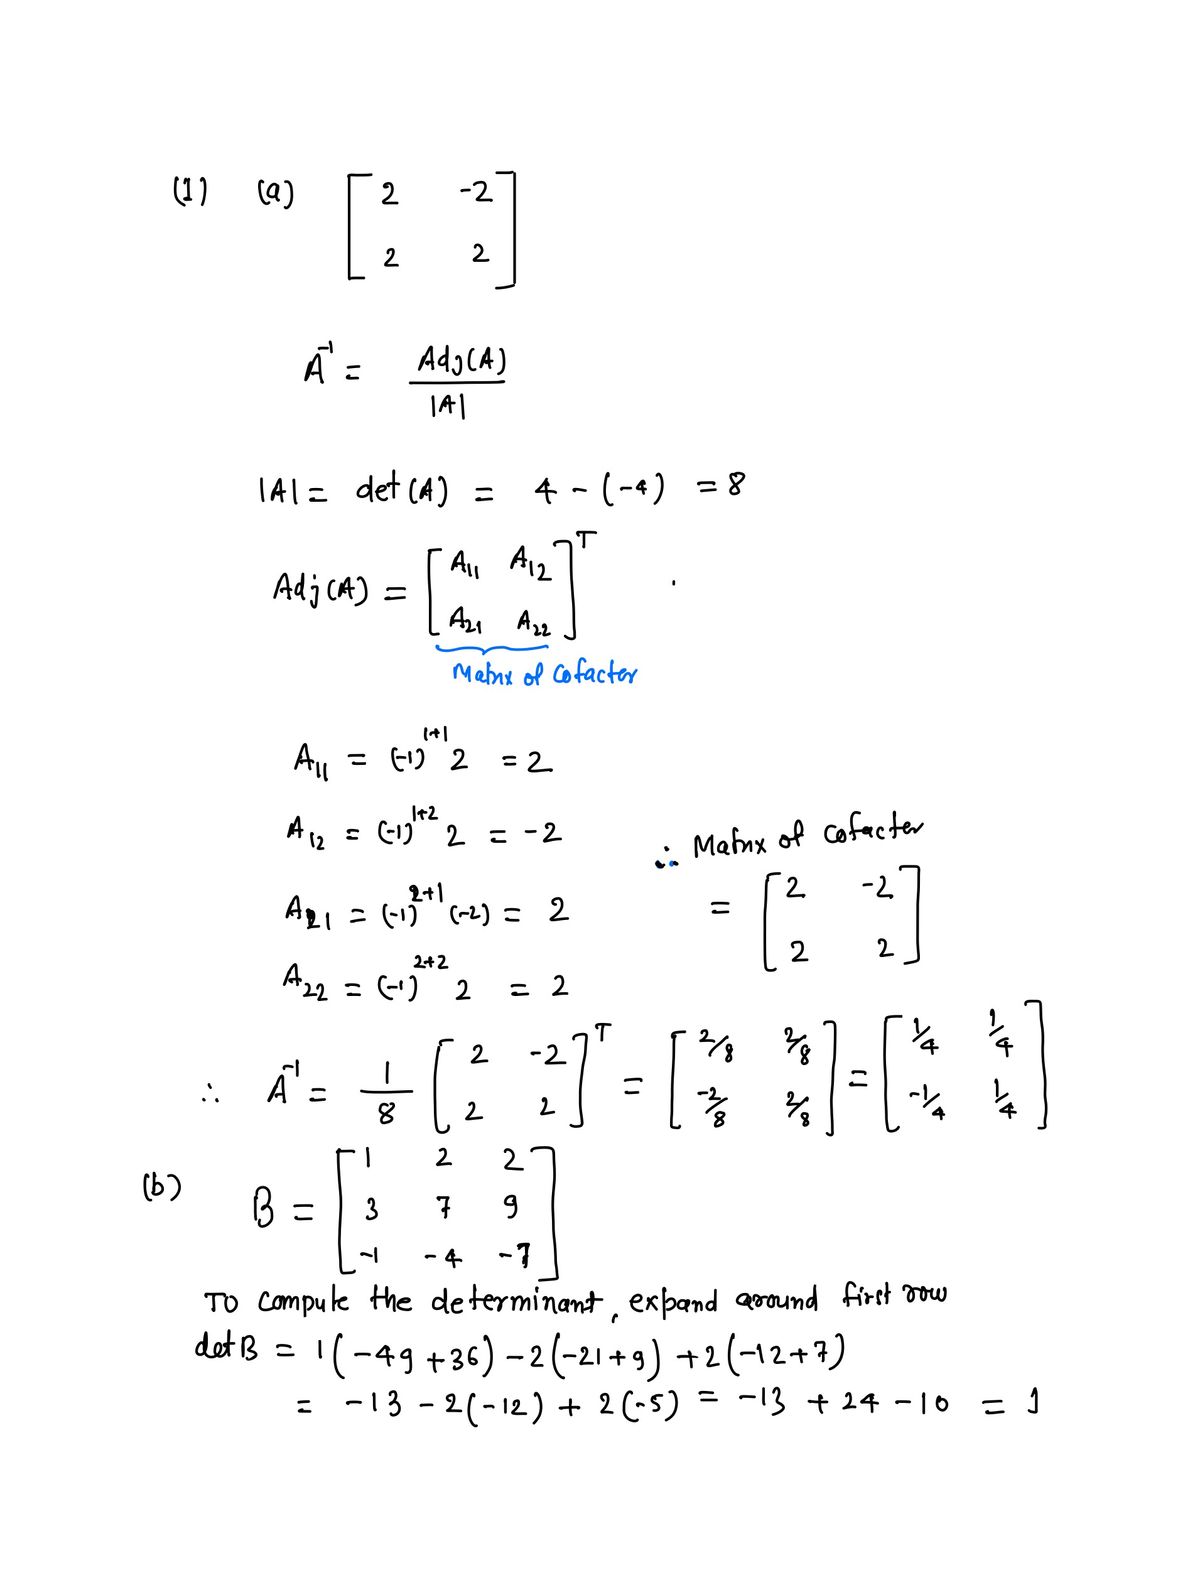 (1) (a) [ 2 -2
2 2 ]
A⁻¹ = Adj(A) / |A|
|A| = det(A) = 4 - (-4) = 8
Adj(A) = [ A₁₁ A₁₂
A₂₁ A₂₂ ]ᵀ
Matrix of Cofacter
A₁₁ = (-1)¹⁺¹ 2 = 2
A₁₂ = (-1)¹⁺² 2 = -2
A₂₁ = (-1)²⁺¹ (-2) = 2
A₂₂ = (-1)²⁺² 2 = 2
∴ Matrix of cofacter
= [ 2 -2
2 2 ]
∴ A⁻¹ = 1/8 [ 2 -2
2 2 ]ᵀ = [ 2/8 2/8
-2/8 2/8 ] = [ 1/4 1/4
-1/4 1/4 ]
(b) B = [ 1 2 2
3 7 9
-1 -4 -7 ]
To compute the determinant, expand around first row
det B = 1(-49 + 36) - 2(-21 + 9) + 2(-12 + 7)
= -13 - 2(-12) + 2(-5) = -13 + 24 - 10 = 1